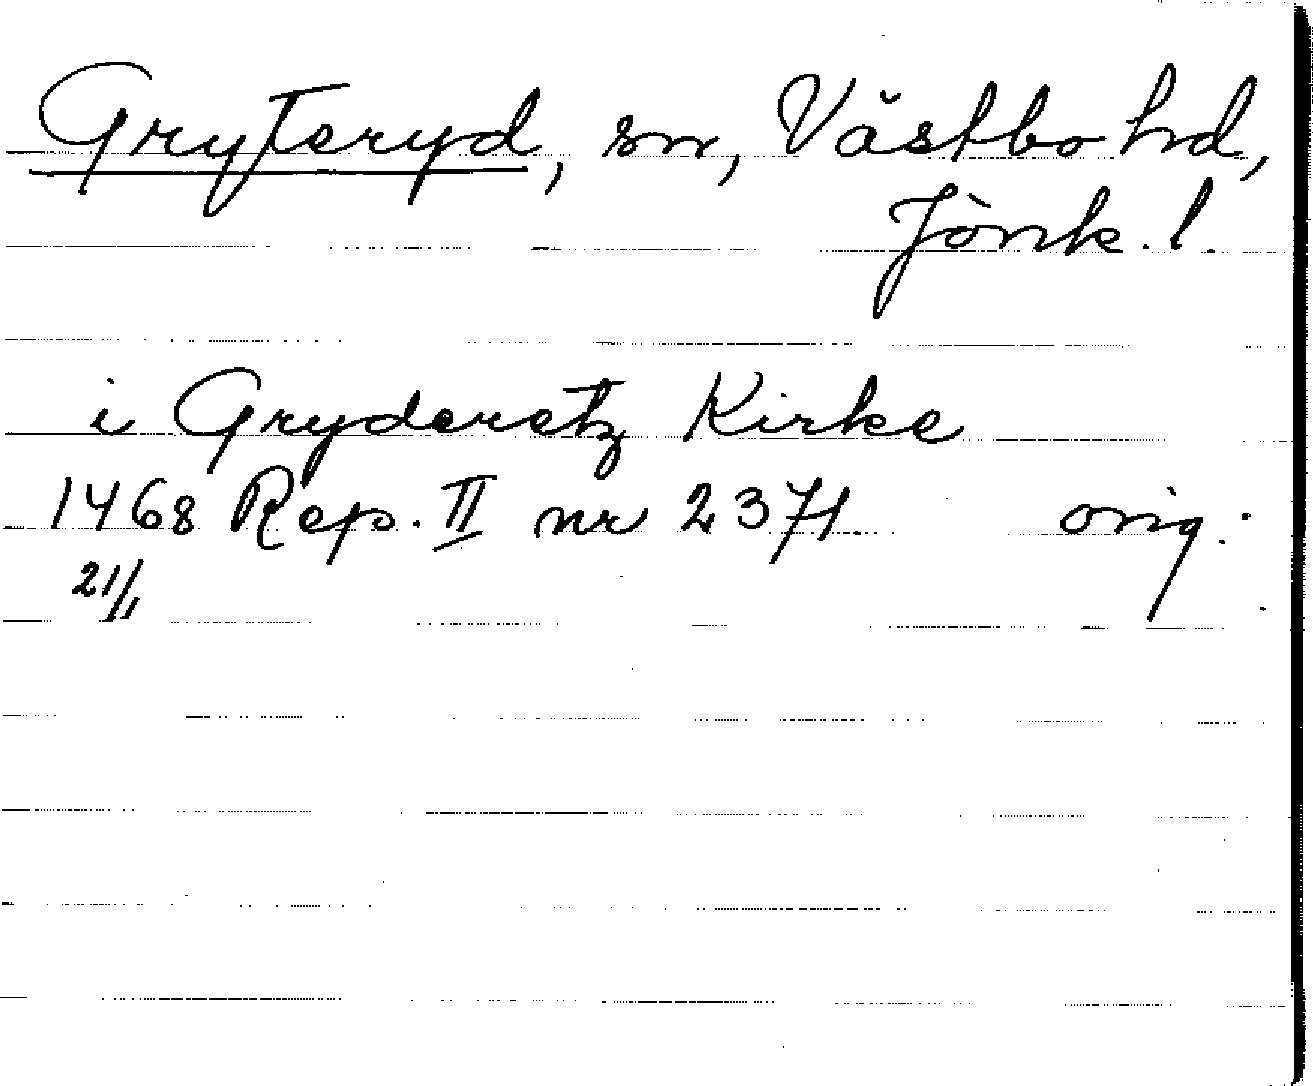 Gryteryd, sn, Västbo hd,
Jönk. l.
i Gryderetz Kirke
1468 Rep. II nr 2371 orig.
21/1